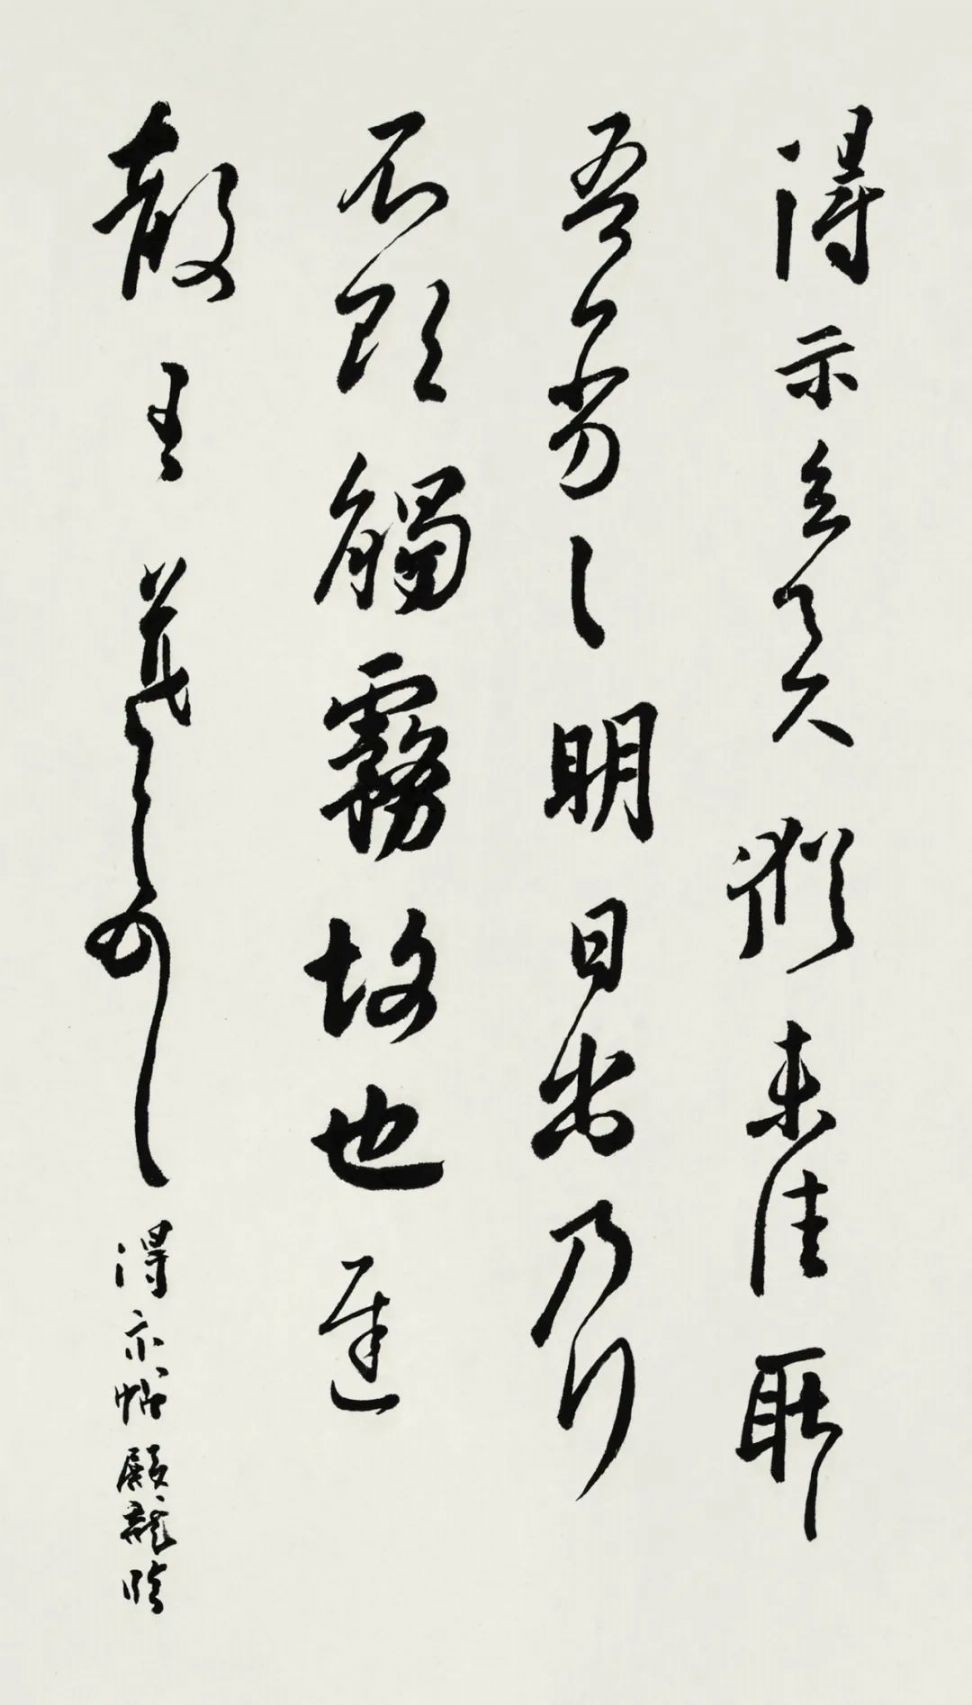 得示知足下猶未佳耿〻
吾亦劣〻明日出乃行
不欲觸霧故也遲
散王羲之頓首
得示帖顧龍臨